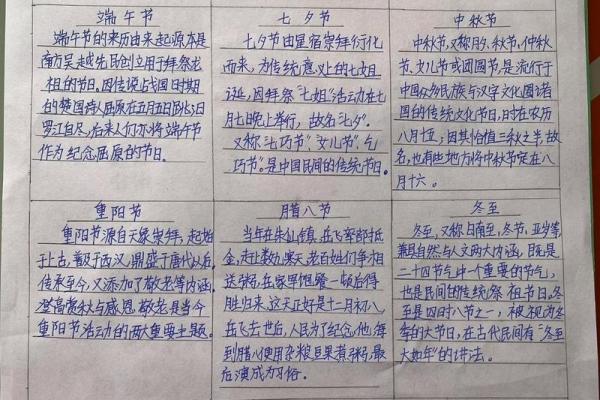 端午节
端午节的来历由来起源本是
南方吴越先民创立用于拜祭龙
祖的节日。因传说战国时期
的楚国诗人屈原在五月五日跳汨
罗江自尽,后来人们亦将端午节
作为纪念屈原的节日。
七夕节
七夕节由星宿崇拜衍化
而来,为传统意义上的七姐
诞,因拜祭“七姐”活动在七
月七晚上举行,故名“七夕”。
又称“七巧节”、“女儿节”、乞
巧节”。是中国民间的传统节日。
中秋节
中秋节,又称月夕、秋节、仲秋
节、女儿节或团圆节,是流行于
中国众多民族与汉字文化圈诸
国的传统文化节日,时在农历
八月十五;因其恰值三秋之半,故
名,也有些地方将中秋节定在八
月十六。
重阳节
重阳节源自天象崇拜,起始
于上古,普及于西汉,鼎盛于唐代以后。
传承至今,又添加了敬老等内涵,
登高赏秋与感恩敬老是当今
重阳节活动的两大重要主题。
腊八节
当年在朱仙镇,岳飞率部抗
金,走上数九寒天,老百姓们争相
送粥,岳家军饱餐一顿后得
胜归来,这天正好是十二月初八,
岳飞去世后,人民为了纪念他,每
到腊八使用杂粮豆果煮粥,最
后演成为习俗。
冬至
冬至,又称日南至、冬节、亚岁等,
兼具自然与人文两大内涵,既是
二十四节气中一个重要的节气,
也是民间的传统祭祖节日。冬
至是四时八节之一,被视为冬
季的大节日,在古代民间有“冬至
大如年”的讲法。